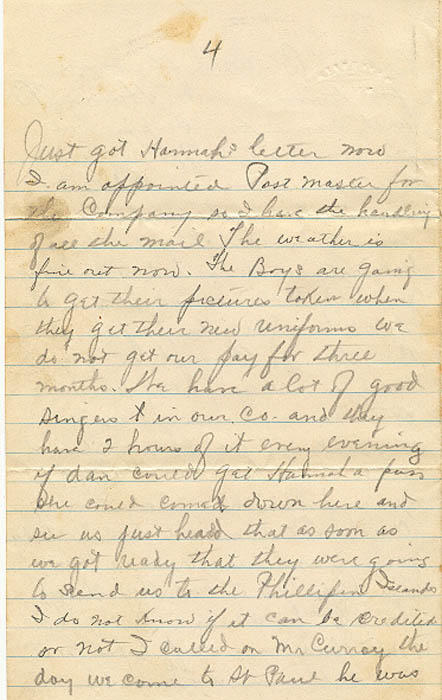 4
Just got Hannah's letter now
I am appointed Post master for
the Company so I have the handling
of all the mail The weather is
fine out now. The Boys are going
to get their pictures taken when
they get their new uniforms We
do not get our pay for three
months. We have a lot of good
singers in our Co. and they
have 2 hours of it every evening
if dan could get Hannah a pass
she could come down here and
see us just heard that as soon as
we got ready that they were going
to send us to the Phillipin Islands
I do not know if it can be credited
or not I called on Mr Curray the
day we come to St Paul he was